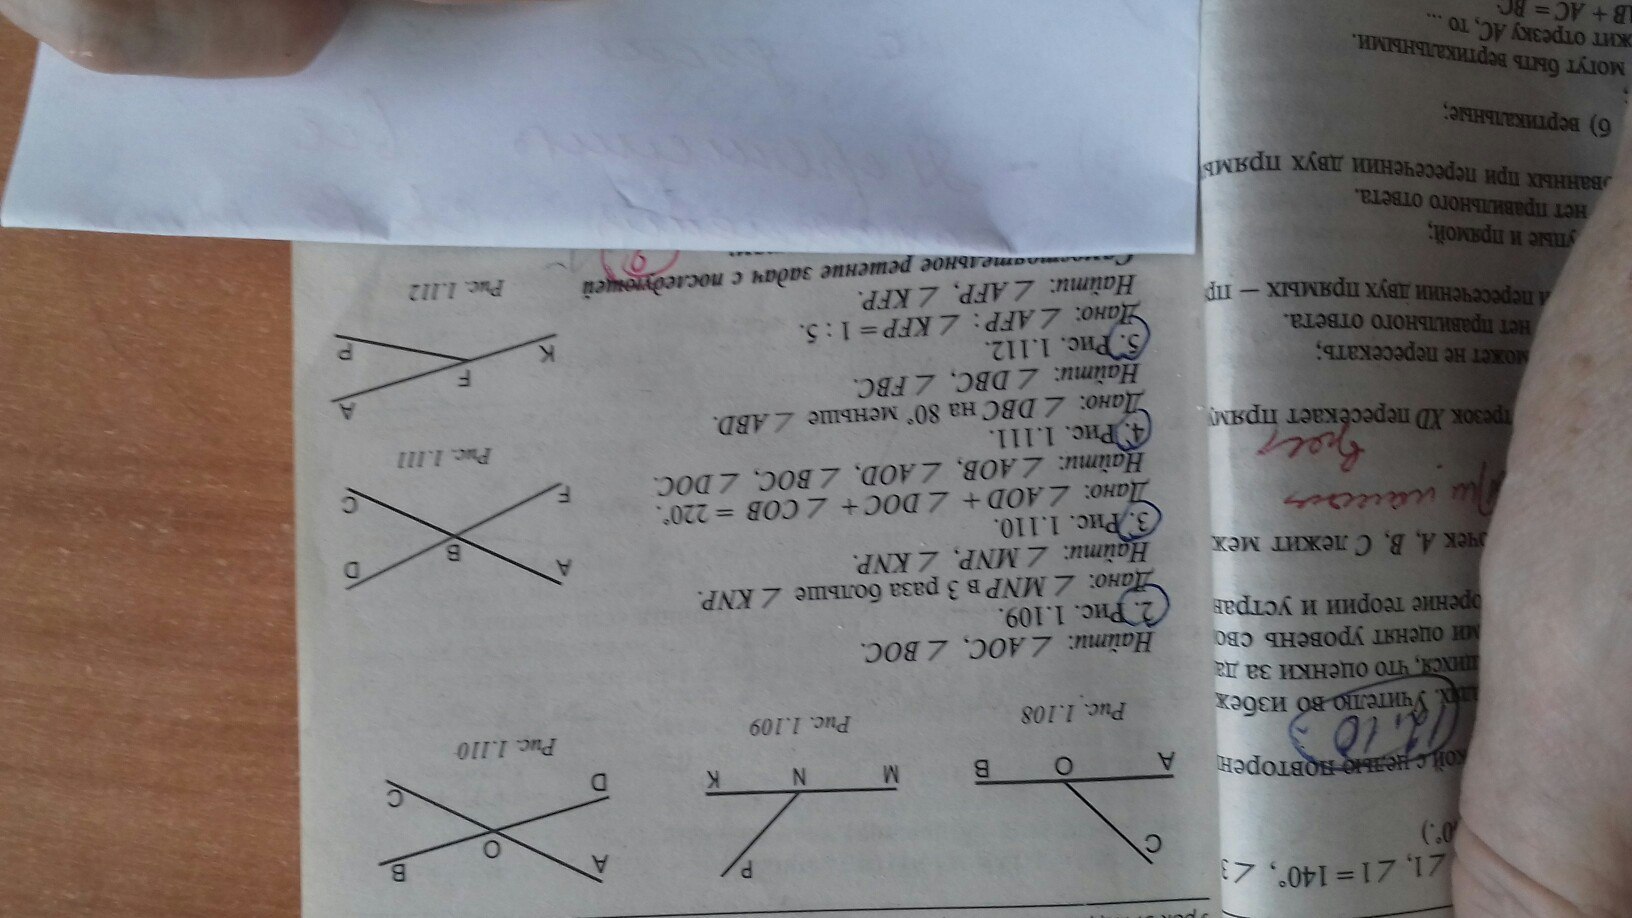 ∠1, ∠1 = 140°, ∠3
0°.)
кой с целью повторен
11.10
щих. Учителю во избеж
щихся, что оценки за да
ми оценят уровень сво
орение теории и устран
очек A, B, C лежит меж
трезок XD пересекает пряму
может не пересекать;
нет правильного ответа.
и пересечении двух прямых — пр
упые и прямой;
нет правильного ответа.
ованных при пересечении двух прямы
б) вертикальные;
могут быть вертикальными.
жит отрезку AC, то ...
AB + AC = BC
C
A
O
B
Рис. 1.108
P
M
N
K
Рис. 1.109
A
B
O
D
C
Рис. 1.110
Найти: ∠AOC, ∠BOC.
2. Рис. 1.109.
Дано: ∠MNP в 3 раза больше ∠KNP.
Найти: ∠MNP, ∠KNP.
3. Рис. 1.110.
Дано: ∠AOD + ∠DOC + ∠COB = 220°.
Найти: ∠AOB, ∠AOD, ∠BOC, ∠DOC.
4. Рис. 1.111.
Дано: ∠DBC на 80° меньше ∠ABD.
Найти: ∠DBC, ∠FBC.
5. Рис. 1.112.
Дано: ∠AFP : ∠KFP = 1 : 5.
Найти: ∠AFP, ∠KFP.
Самостоятельное решение задач с последующей
A
D
B
F
C
Рис. 1.111
A
F
K
P
Рис. 1.112